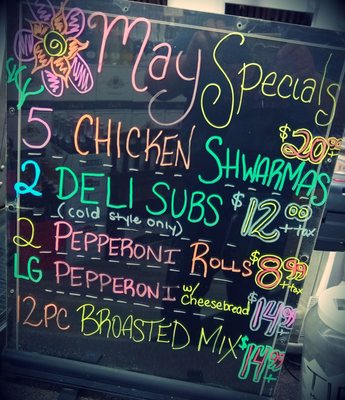 May Specials
5 CHICKEN SHWARMAS $20.00
2 DELI SUBS $12.00 + tax
(cold style only)
2 PEPPERONI ROLLS $8.99 + tax
LG PEPPERONI w/ cheesebread $14.99 +
12PC BROASTED MIX $14.99 +